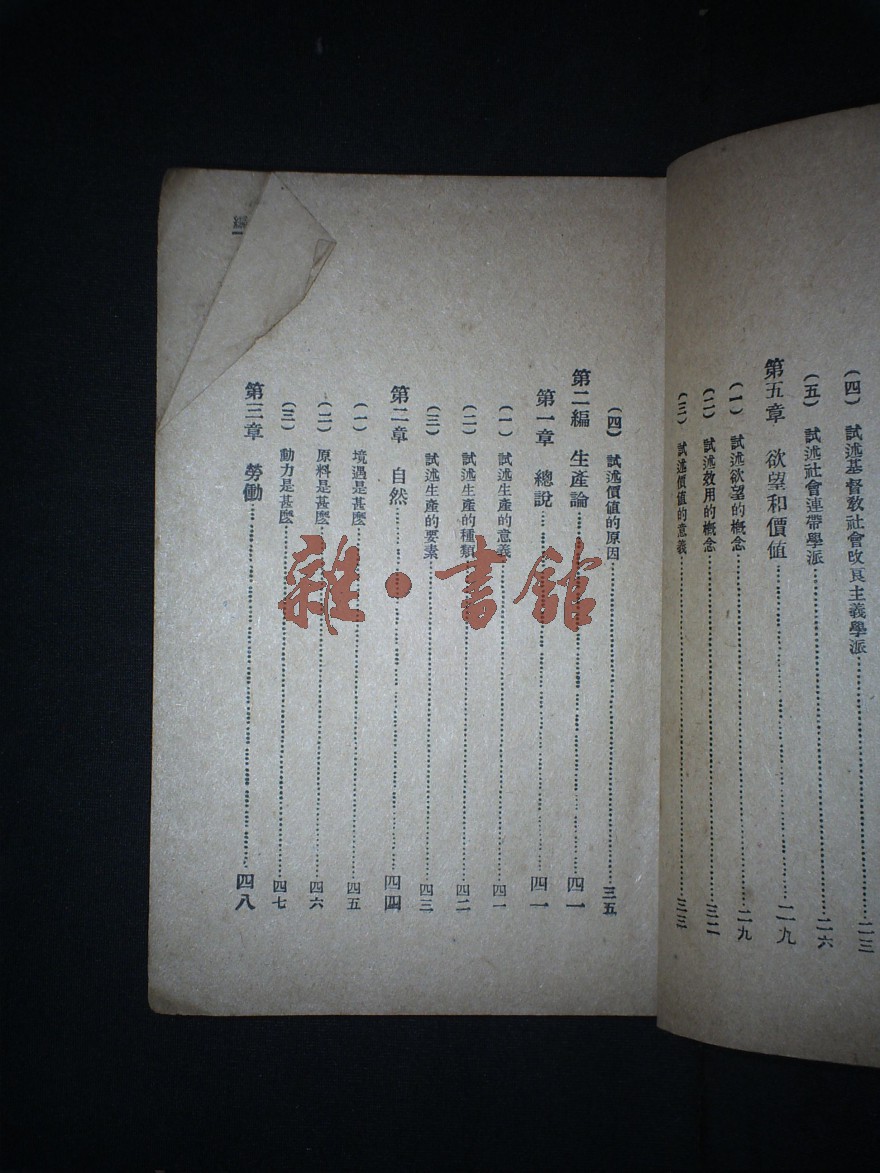 (四) 試述基督敎社會改良主義學派……二三
(五) 試述社會連帶學派……二六
第五章 欲望和價值……二九
(一) 試述欲望的槪念……二九
(二) 試述效用的槪念……三二
(三) 試述價値的意義……三三
(四) 試述價値的原因……三五
第二編 生產論……四一
第一章 總說……四一
(一) 試述生產的意義……四一
(二) 試述生產的種類……四二
(三) 試述生產的要素……四三
第二章 自然……四四
(一) 境遇是甚麽……四五
(二) 原料是甚麽……四六
(三) 動力是甚麽……四七
第三章 勞働……四八
雜·書館